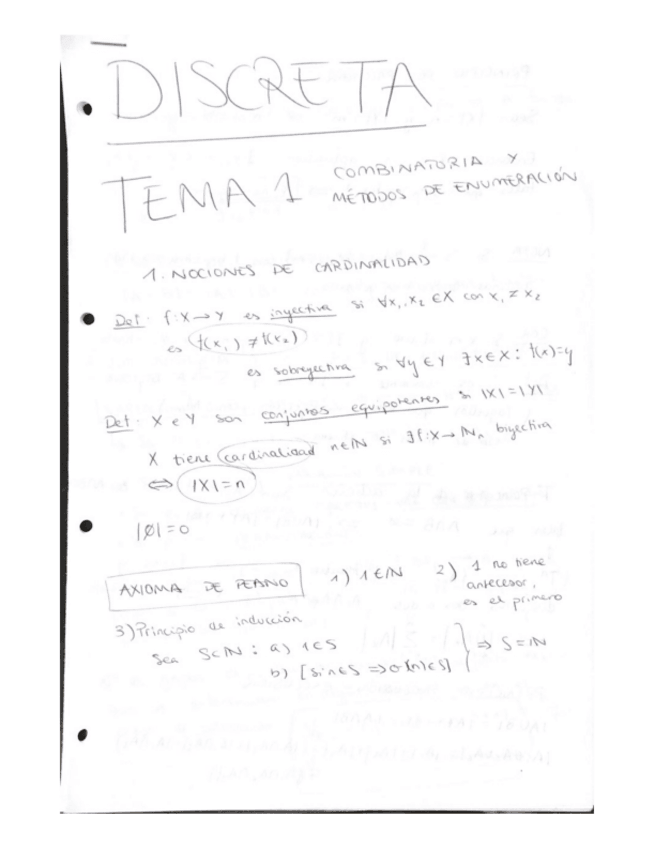 DISCRETA
TEMA 1 COMBINATORIA Y
MÉTODOS DE ENUMERACIÓN
1. NOCIONES DE CARDINALIDAD
Def. f: X → Y es inyectiva si ∀x₁, x₂ ∈ X con x₁ ≠ x₂
es f(x₁) ≠ f(x₂)
es sobreyectiva si ∀y ∈ Y ∃x ∈ X : f(x)=y
Def. X e Y son conjuntos equipotentes si |X|=|Y|
X tiene cardinalidad n∈ℕ si ∃f: X → ℕₙ biyectiva
⇔ |X|=n
|∅|=0
AXIOMA DE PEANO 1) 1∈ℕ 2) 1 no tiene
antecesor,
es el primero
3) Principio de inducción
Sea S⊂ℕ : a) 1∈S
b) [si n∈S ⇒ σ(n)∈S] } ⇒ S=ℕ